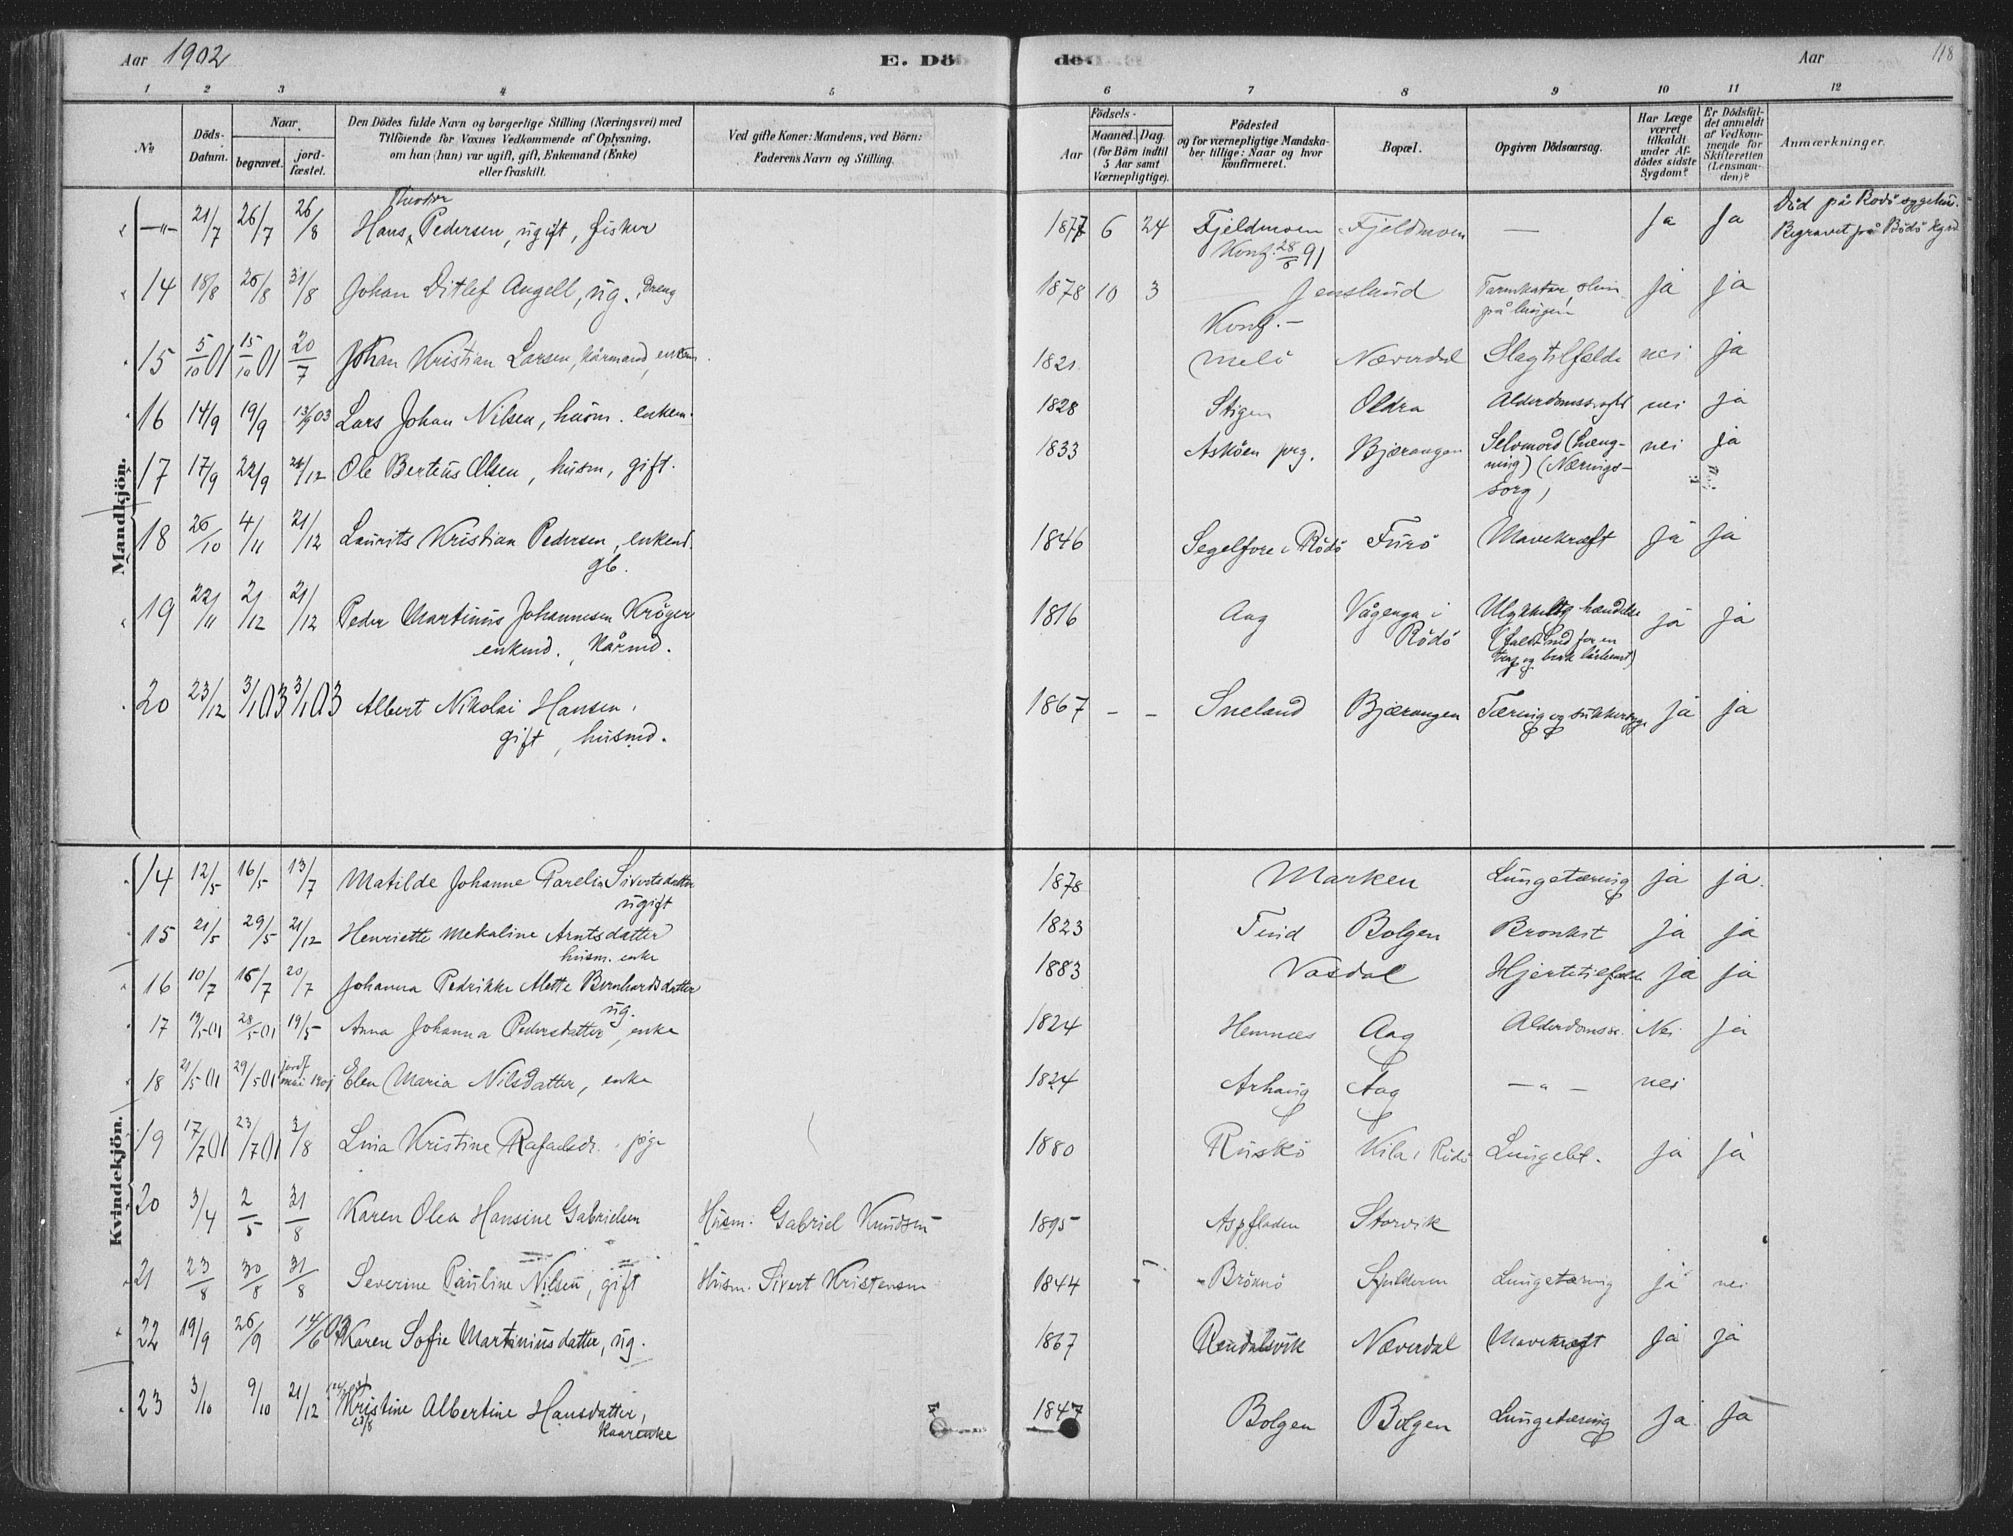 Aar 1902
E. Dö
död.
Aar
118
1 2 3 4 5 6 7 8 9 10 11 12
No
Döds-Datum.
Naar
begravet.
jordfæstet.
Den Dödes fulde Navn og borgerlige Stilling (Næringsvei) med
Tilföiende for Voxnes Vedkommende af Oplysning,
om han (hun) var ugift, gift, Enkemand (Enke)
eller fraskilt.
Ved gifte Koner: Mandens, ved Börn:
Faderens Navn og Stilling.
Födsels-
Aar
Maaned. Dag.
(for Börn indtil
5 Aar samt
Værnepligtige).
Födested
og for værnepligtige Mandskaber tillige: Naar og hvor
konfirmeret.
Bopæl.
Opgiven Dödsaarsag.
Har Læge
været
tilkaldt
under Afdödes sidste
Sygdom?
Er Dödsfaldet anmeldt
af Vedkommende for
Skifteretten
(Lensmanden)?
Anmærkninger.
Mandkjön.
Theodor
—"— 21/7 26/7 26/8 Hans Pedersen, ugift, fisker 1877 6 24 Fjeldmoen Fjeldmoen — ja ja Död på Bodö sygehus.
Konf. 28/6 91 Begravet på Bodö kgrd
14 18/8 26/8 31/8 Johan Ditlef Angell, ug. dreng 1878 10 3 Jensland Tarmkatar, slim ja ja
Konf. — på lungen
15 5/10 01 15/10 01 20/7 Johan Kristian Larsen, kårmand, enkem. 1821 Melö Næverdal Slagtilfælde nei ja
16 14/9 19/9 13/9 03 Lars Johan Nilsen, husm. enkem. 1828 Stigen Oldra Alderdomssvaghd nei ja
17 17/9 22/9 21/12 Ole Berteus Olsen, husm, gift. 1833 Asköen prg. Bjærangen Selvmord (hængning) (Næringssorg) nei ja
18 26/10 4/11 21/12 Laurits Kristian Pedersen, enkemd. 1846 Segelfore i Rödö Furö Mavekræft ja ja
gb.
19 22/11 2/12 21/12 Peder Martinus Johannesen Kröger 1816 Aag Vågenga i Rödö Ulykkelig hændelse ja ja
enkemd., kårmd. (faldt ned for en
trap og brak lårbenet)
20 23/12 3/1 03 3/1 03 Albert Nikolai Hansen, 1867 - - Sneland Bjærangen Tæring og sukkersyge ja ja
gift, husmd.
Kvindekjön.
14 12/5 16/5 13/7 Matilde Johanne Parelia Sivertsdatter 1878 Marken Lungetæring ja ja.
ugift
15 21/5 29/5 21/12 Henriette Mekaline Arntsdatter 1823 Teind Bolgen Bronkit ja ja
husm. enke
16 10/7 16/7 20/7 Johanna Pedrikke Alette Bernhardsdatter 1883 Vasdal Hjertetilfælde ja ja
ug.
17 19/5 01 28/5 01 19/5 Anna Johanna Pedersdatter, enke 1824 Hemnes Aag Alderdomssv. Nei ja
18 21/5 01 29/5 01 jordf. mai 1901 Elen Maria Nilsdatter, enke 1824 Arhaug Aag — " — nei
19 17/7 01 23/7 01 3/8 Lina Kristine Rafaelsdr. pige 1880 Ruskö Kila i Rödö Lungebet. ja ja
20 3/4 2/5 31/8 Karen Olea Hansine Gabrielsen Husm. Gabriel Knudsen 1895 Aspfladen Storvik
21 23/8 30/8 31/8 Severine Pauline Nilsen, gift Husm. Sivert Kristensen 1844 Brönnö Spilderen Lungetæring ja nei
22 19/9 26/9 14/6 03 Karen Sofie Martiniusdatter, ug. 1867 Rendalsvik Næverdal Mavekræft ja ja
23 3/10 9/10 21/12 Kristine Albertine Hansdatter, 1847 Bolgen Bolgen Lungetæring ja ja
Kaarenke